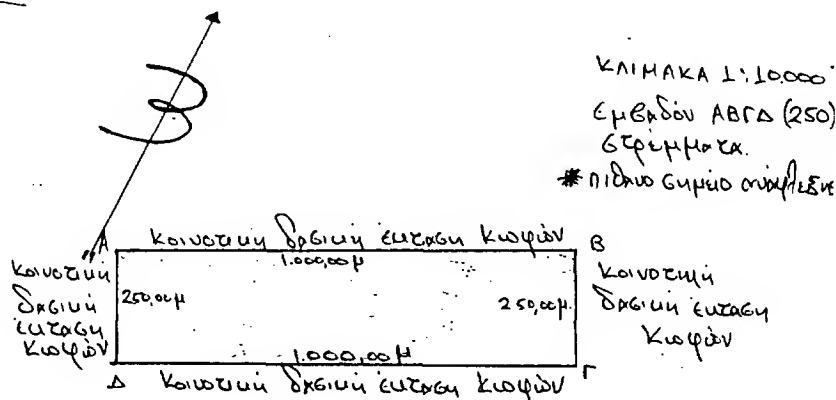 ΚΛΙΜΑΚΑ 1:10.000
Εμβαδόν ΑΒΓΔ (250)
στρέμματα.
* πιθανό σημείο ανάφλεξης
Α
Κοινοτική δασική έκταση Κωφών
Β
1.000,00μ
Κοινοτική
δασική
έκταση
Κωφών
250,00μ
250,00μ.
Κοινοτική
δασική έκταση
Κωφών
1.000,00μ
Δ
Κοινοτική δασική έκταση Κωφών
Γ